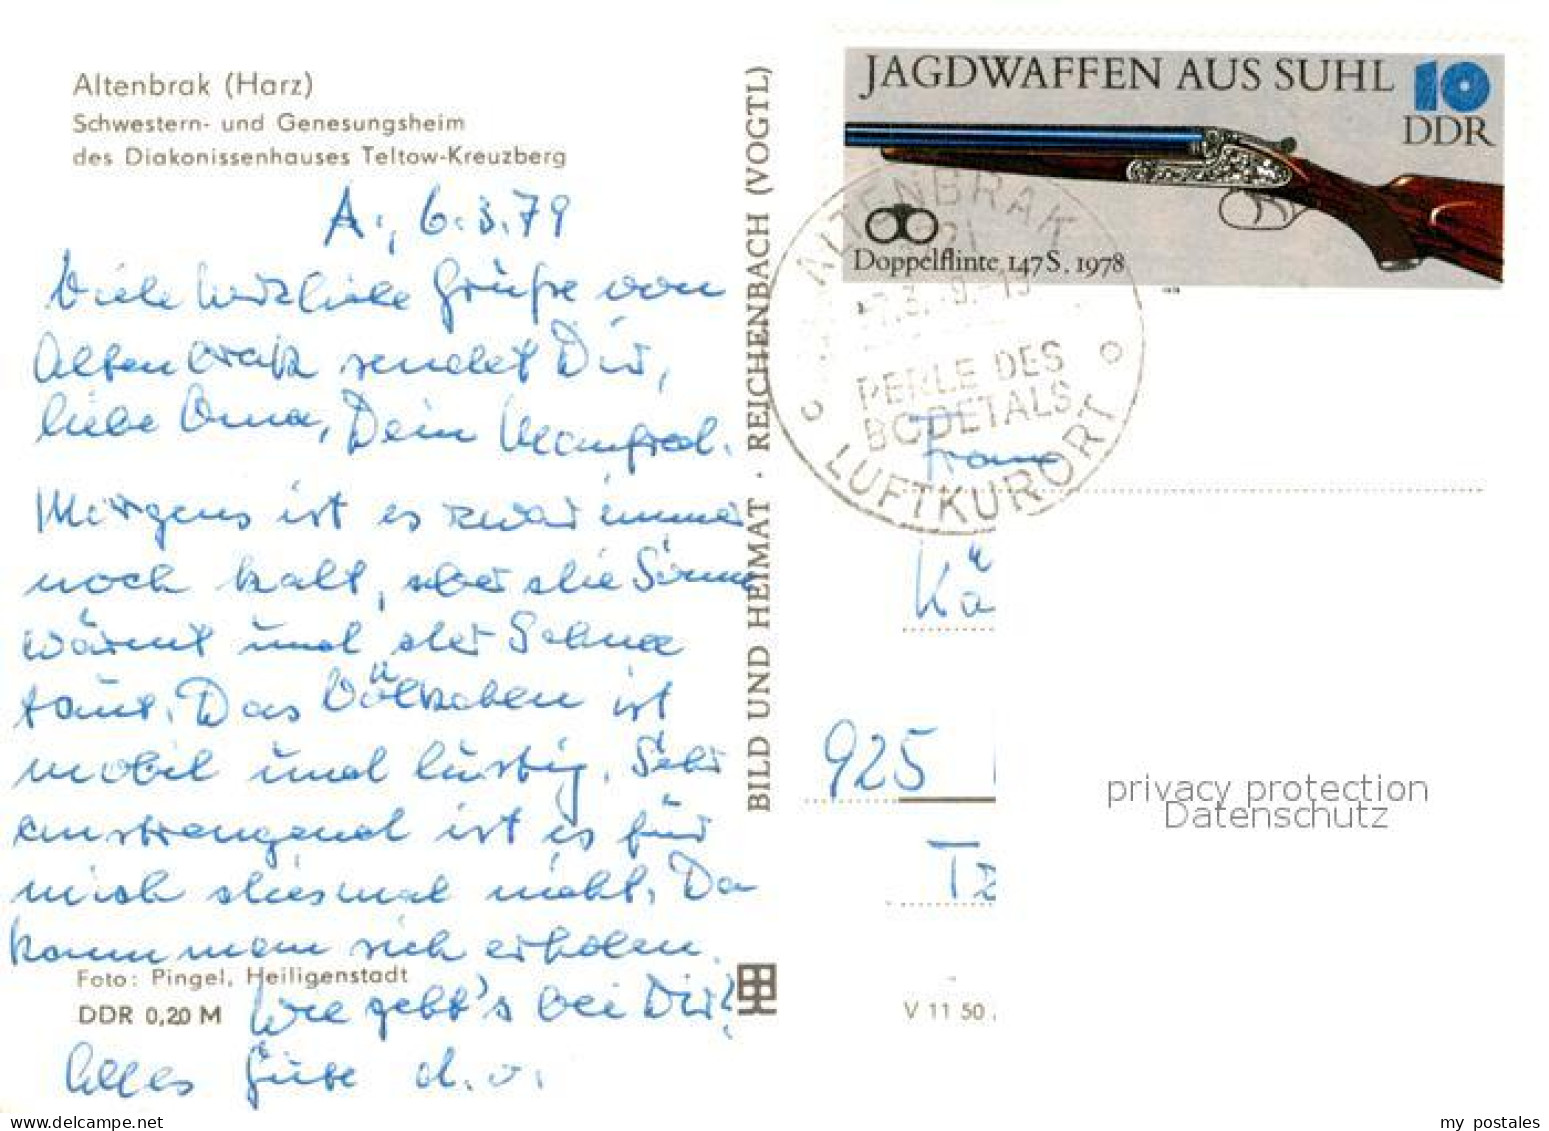 Altenbrak (Harz)
Schwestern- und Genesungsheim
des Diakonissenhauses Teltow-Kreuzberg
A., 6.3.79
Viele herzliche Grüße von
Altenbrak sendet Dir,
liebe Oma, Dein Manfred.
Morgens ist es zwar immer
noch kalt, aber die Sonne
wärmt und der Schnee
taut. Das Völkchen ist
mobil und lustig. Sehr
anstrengend ist es für
mich diesmal nicht. Da
kann man sich erholen.
Foto: Pingel, Heiligenstadt
DDR 0,20 M
Wie geht's bei Dir?
Alles Gute d. o.
BILD UND HEIMAT · REICHENBACH (VOGTL)
JAGDWAFFEN AUS SUHL 10
DDR
Doppelflinte 147 S, 1978
ALTENBRAK
PERLE DES
BODETALS
LUFTKURORT
Frau
Kä
925
Tz
V 11 50
privacy protection
Datenschutz
my postales